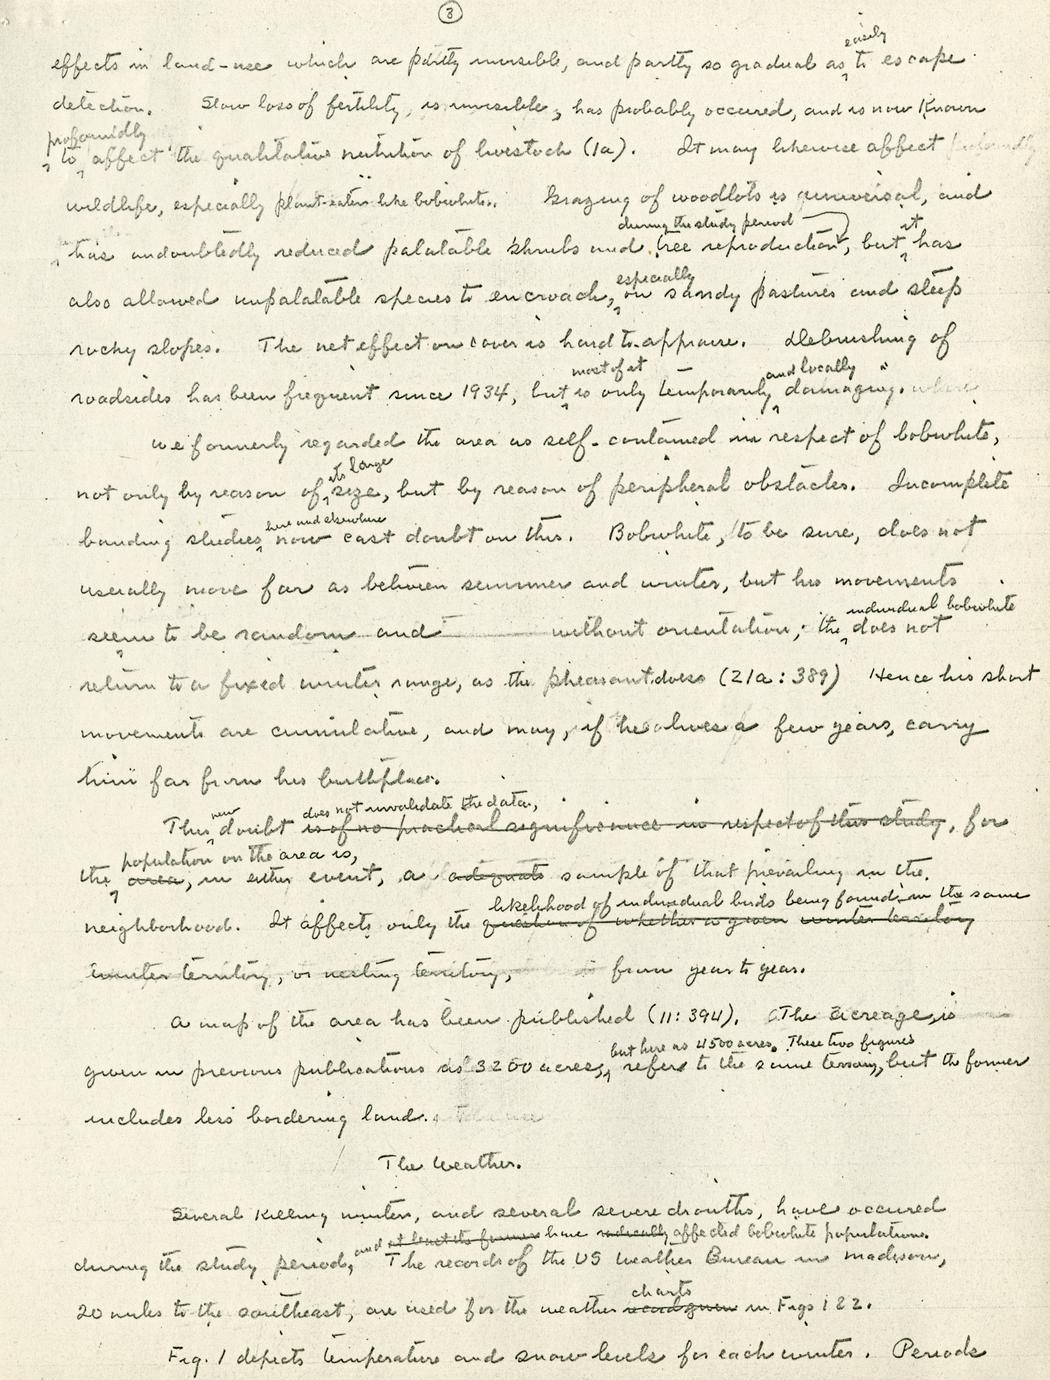 3
effects in land-use which are partly invisible, and partly so gradual as easily to escape
detection. Slow loss of fertility, is invisible, has probably occured, and is now known
to profoundly affect the qualitative nutrition of livestock (1a). It may likewise affect profoundly
wildlife, especially plant-eaters like bobwhite. Grazing of woodlots is universal, and
has undoubtedly reduced palatable shrubs and tree reproduction during the study period, but it has
also allowed unpalatable species to encroach, especially on sandy pastures and steep
rocky slopes. The net effect on cover is hard to appraise. Debrushing of
roadsides has been frequent since 1934, but most of it is only temporarily and locally damaging. where
We formerly regarded the area as self-contained in respect of bobwhite,
not only by reason of its large size, but by reason of peripheral obstacles. Incomplete
banding studies here and elsewhere now cast doubt on this. Bobwhite, to be sure, does not
usually move far as between summer and winter, but his movements
seem to be random and without orientation; the individual bobwhite does not
return to a fixed winter range, as the pheasant does (21a: 389) Hence his short
movements are cumulative, and may, if he lives a few years, carry
him far from his birthplace.
This new doubt does not invalidate the data, is of no practical significance in respect of this study, for
the population on the area is, area, in either event, a adequate sample of that prevailing in the
neighborhood. It affects only the likelihood of individual birds being found in the same question of whether a given winter territory
winter territory, or nesting territory, from year to year.
A map of the area has been published (11: 394). The acreage is
given in previous publications as 3200 acres, but here as 4500 acres. These two figures refer to the same terrain, but the former
includes less bordering land.
The Weather.
Several killing winters, and several severe drouths, have occured
during the study period, and at least the former have radically affected bobwhite populations. The records of the US Weather Bureau in Madison,
20 miles to the southeast, are used for the weather charts in Figs 1 & 2.
Fig. 1 depicts temperature and snow levels for each winter. Periods